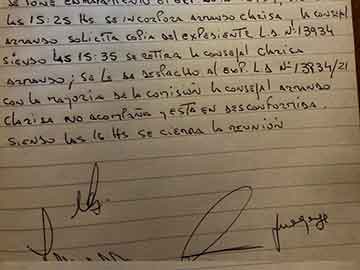 se pone en tratamiento el
las 15:25 Hs. se incorpora armando clarisa, la consejal
armando solicita copia del expediente L.D Nº 13934
siendo las 15:35 se retira la consejal clarica
armando; se le da despacho al exp. L.D Nº 13834/21
con la mayoria de la comision la consejal armando
clarisa no acompaña y esta en desconformida.
siendo las 16 Hs se cierra la reunión